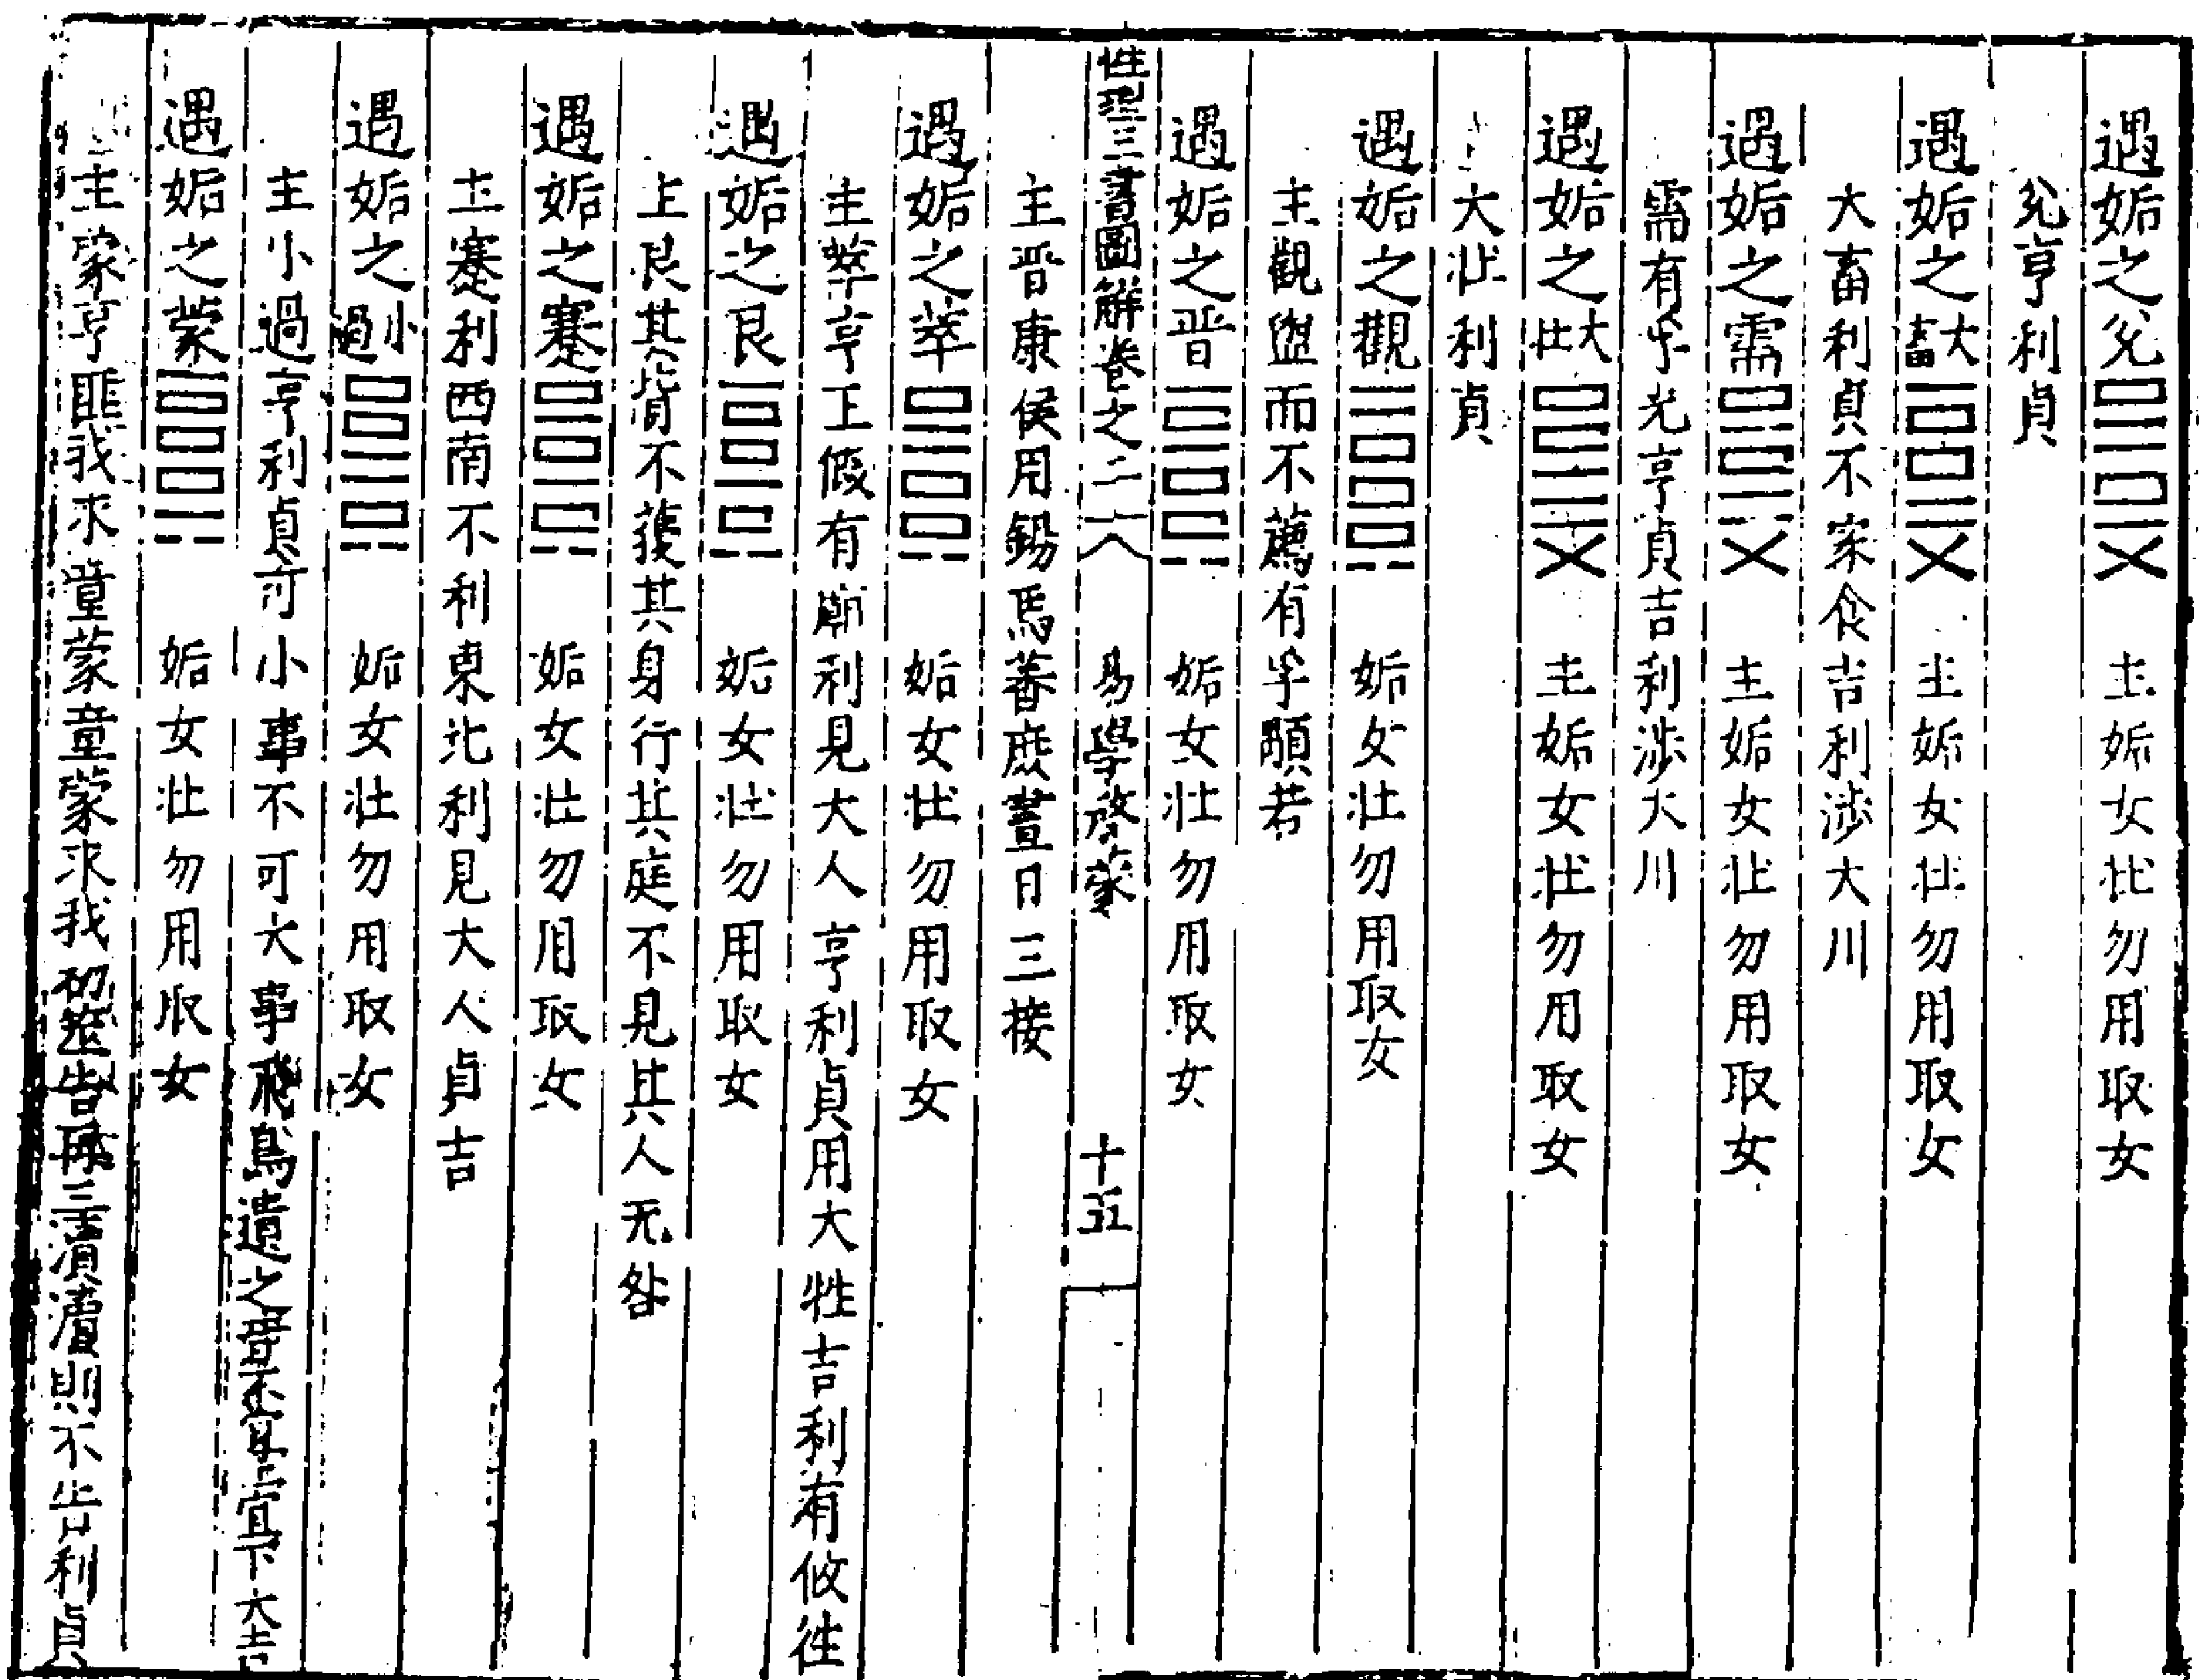 遇姤之兌 主姤女壯勿用取女
兌亨利貞
遇姤之大畜 主姤女壯勿用取女
大畜利貞不家食吉利涉大川
遇姤之需 主姤女壯勿用取女
需有孚光亨貞吉利涉大川
遇姤之大壯 主姤女壯勿用取女
大壯利貞
遇姤之觀 姤女壯勿用取女
主觀盥而不薦有孚顒若
遇姤之晋 姤女壯勿用取女
性理三書圖解卷之二 易學啓蒙 十五
主晋康侯用錫馬蕃庶晝日三接
遇姤之萃 姤女壯勿用取女
主萃亨王假有廟利見大人亨利貞用大牲吉利有攸徃
遇姤之艮 姤女壯勿用取女
主艮其背不獲其身行其庭不見其人无咎
遇姤之蹇 姤女壯勿用取女
主蹇利西南不利東北利見大人貞吉
遇姤之小過 姤女壯勿用取女
主小過亨利貞可小事不可大事飛鳥遺之音不宜下大吉
遇姤之蒙 姤女壯勿用取女
主蒙亨匪我求童蒙童蒙求我初筮告再三瀆瀆則不告利貞